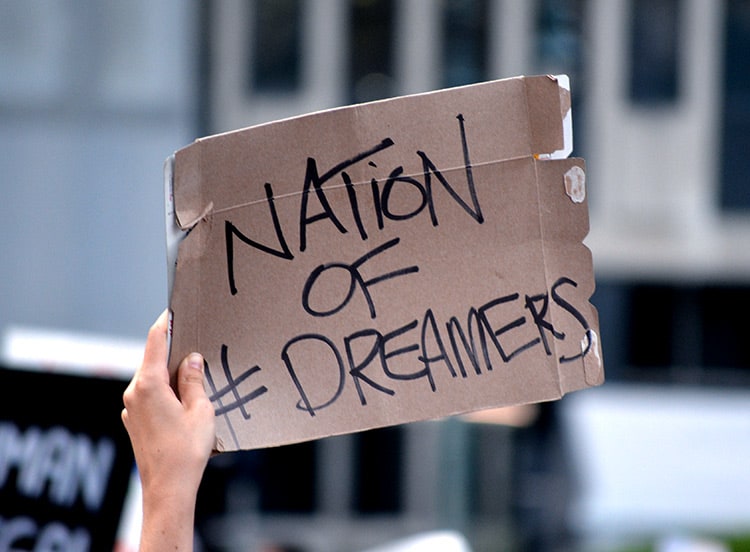 NATION
OF
# DREAMERS